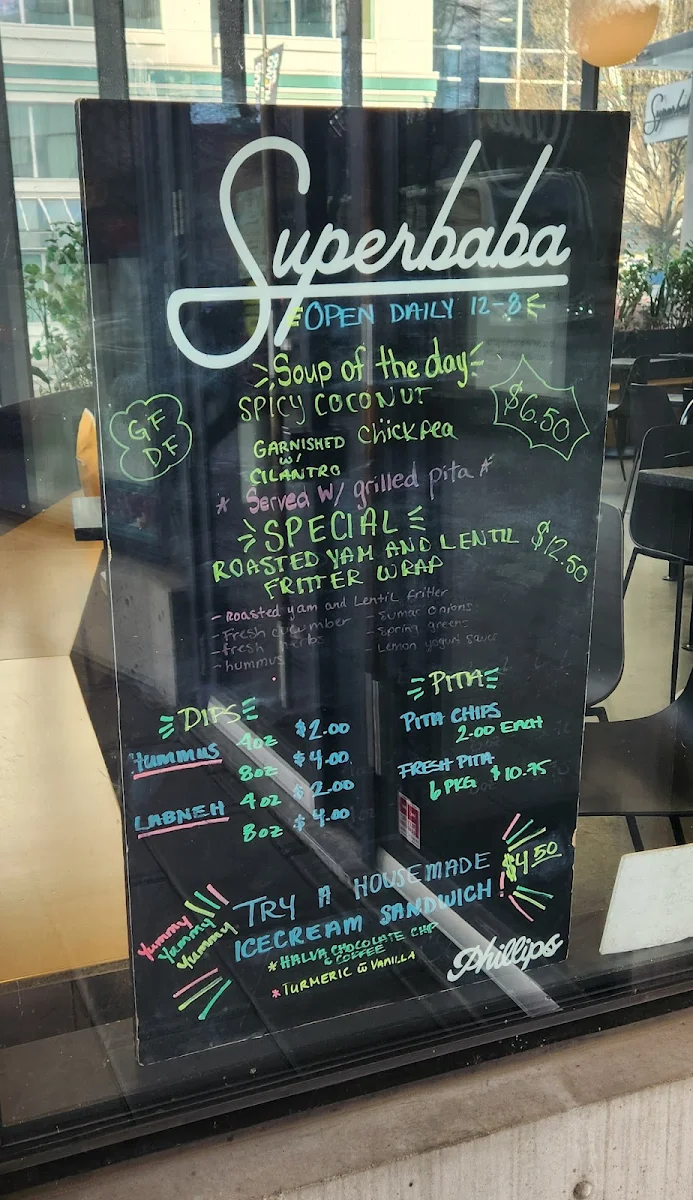 Superbaba
OPEN DAILY 12-8
Soup of the day
SPICY COCONUT
Chickpea
GARNISHED
w/
CILANTRO
$6.50
GF
DF
* Served w/ grilled pita *
SPECIAL
ROASTED YAM AND LENTIL
FRITTER WRAP
$12.50
- Roasted yam and Lentil fritter
- Fresh cucumber
- fresh herbs
- hummus
- Sumac onions
- Spring greens
- Lemon yogurt sauce
DIPS
HUMMUS 4oz $2.00
8oz $4.00
LABNEH 4oz $2.00
8oz $4.00
PITA
PITA CHIPS
2.00 EACH
FRESH PITA
6 PKG $10.75
TRY A HOUSEMADE
ICECREAM SANDWICH!
$4.50
Yummy
Yummy
Yummy
* HALVA CHOCOLATE CHIP
& COFFEE
* TURMERIC & VANILLA
Phillips
Superbaba